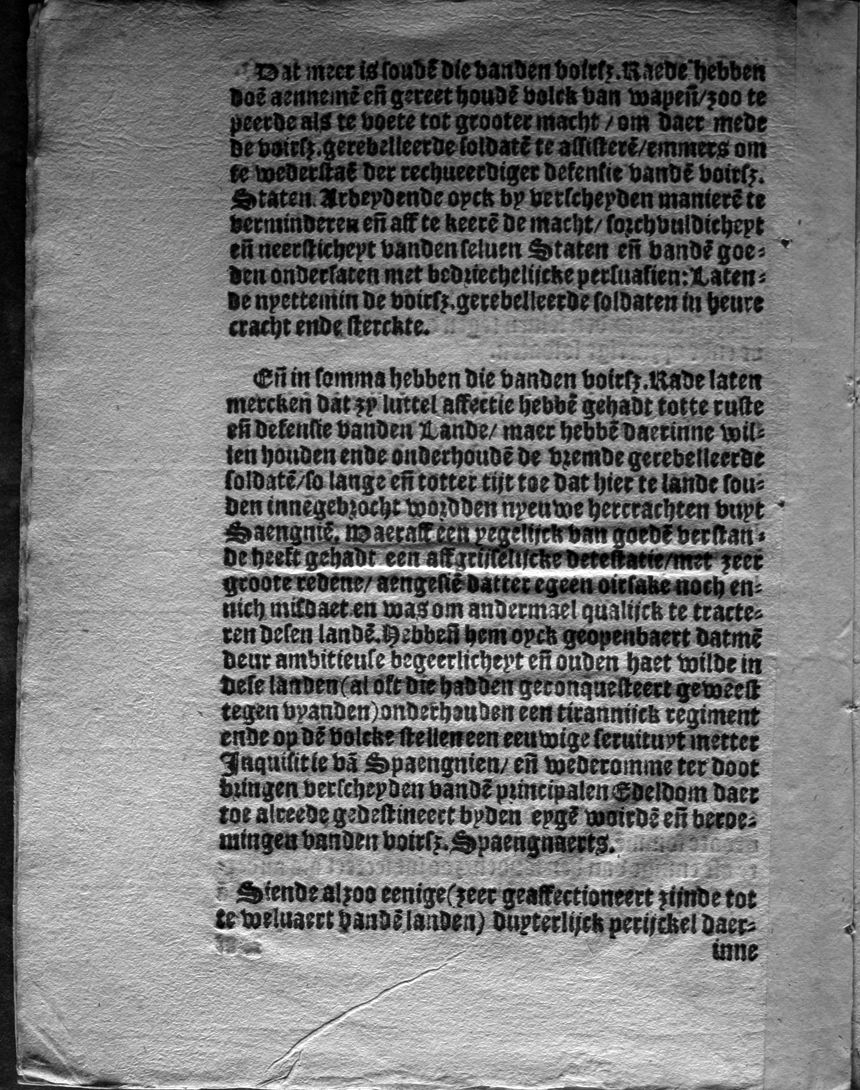 Dat meer is soudē die vanden voirsz. Raede hebben
doē aennemē eñ gereet houdē volck van wapeñ/zoo te
peerde als te voete tot grooter macht / om daer mede
de voirsz. gerebelleerde soldatē te assisterē/emmers om
te wederstaē der rechueerdiger defensie vandē voirsz.
Staten. Arbeydende oyck by verscheyden manierē te
verminderen eñ aff te keerē de macht/ sorchvuldicheyt
eñ neersticheyt vanden seluen Staten eñ vandē goe-
den ondersaten met bedriechelijcke persuasien: Laten-
de nyettemin de voirsz. gerebelleerde soldaten in heure
cracht ende sterckte.
Eñ in somma hebben die vanden voirsz. Rade laten
mercken dat zy luttel affectie hebbē gehadt totte ruste
eñ defensie vanden Lande/ maer hebbē daerinne wil-
len houden ende onderhoudē de vremde gerebelleerde
soldatē/so lange eñ totter tijt toe dat hier te lande sou-
den innegebrocht wordden nyeuwe hercrachten vuyt
Saengniē. Waeraff een yegelijck van goedē verstan-
de heeft gehadt een affgrijselijcke detestatie/met zeer
groote redene/ aengesiē datter egeen oirsake noch en-
nich misdaet en was om andermael qualijck te tracte-
ren desen landē. Hebbeñ hem oyck geopenbaert datmē
deur ambitieuse begeerlicheyt eñ ouden haet wilde in
dese landen(al oft die hadden geconquesteert geweest
tegen vyanden)onderhouden een tirannijck regiment
ende op dē volcke stellen een eeuwige seruituyt metter
Inquisitie vā Spaengnien/ eñ wederomme ter doot
bringen verscheyden vandē principalen Edeldom daer
toe alreede gedestineert byden eygē woirdē eñ beroe-
mingen vanden voirsz. Spaengnaerts.
Siende alzoo eenige(zeer geaffectioneert zijnde tot
te weluaert vandē landen) duyterlijck perijckel daer-
inne